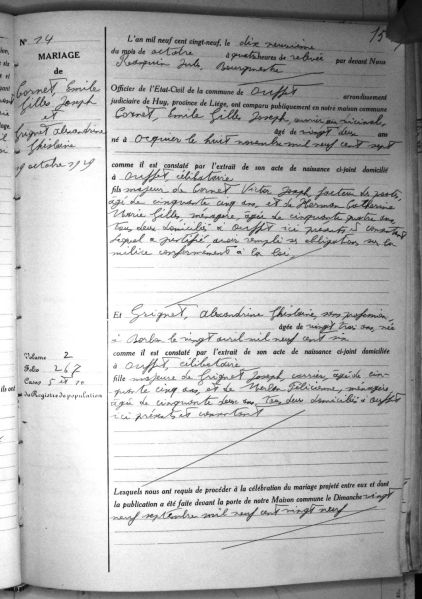 15
N° 14
MARIAGE
de
Cornet, Emile
Gilles, Joseph
et
Grignet Alexandrine
Ghislaine
19 octobre 1929
Volume 2
Folio 267
Cases 5 et 10
du Registre de population
L'an mil neuf cent vingt-neuf, le dix neuvième
du mois de octobre à quatre heures de relevée par devant Nous
Jule, Bourgmestre
Officier de l'Etat-Civil de la commune de Ouffet arrondissement
judiciaire de Huy, province de Liége, ont comparu publiquement en notre maison commune
Cornet, Emile Gilles Joseph, ouvrier
âgé de vingt deux ans
né à Ocquier le huit novembre mil neuf cent sept
comme il est constaté par l'extrait de son acte de naissance ci-joint domicilié
à Ouffet célibataire
fils majeur de Cornet Victor Joseph facteur des postes,
âgé de cinquante cinq ans, et de Herman Catherine
Marie Gilles, ménagère, âgée de cinquante quatre ans,
tous deux domiciliés à Ouffet ici présents et consentant
lequel a justifié avoir rempli ses obligations sur la
milice conformément à la loi.
Et Grignet, Alexandrine Ghislaine, sans profession,
âgée de vingt trois ans, née
à Borlon le vingt avril mil neuf cent six
comme il est constaté par l'extrait de son acte de naissance ci-joint domiciliée
à Ouffet, célibataire
fille majeure de Grignet Joseph, carrier, âgé de cin-
quante cinq ans, et de Félicienne, ménagère
âgée de cinquante deux ans, tous deux domiciliés à Ouffet
ici présents et consentant
Lesquels nous ont requis de procéder à la célébration du mariage projeté entre eux et dont
la publication a été faite devant la porte de notre Maison commune le Dimanche vingt
neuf septembre mil neuf cent vingt neuf